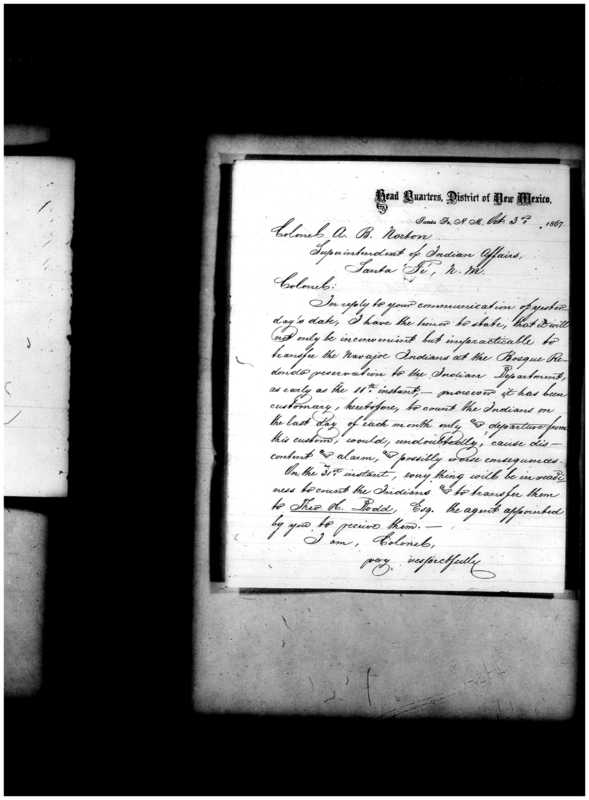 Head Quarters, District of New Mexico,
Santa Fe, N. M. Oct. 3rd, 1867
Colonel A. B. Norton
Superintendent of Indian Affairs,
Santa Fe, N. M.
Colonel:
In reply to your communication of yester-
day's date, I have the honor to state, that it will
not only be inconvenient but impracticable to
transfer the Navajoe Indians at the Bosque Re-
dondo reservation to the Indian Department,
as early as the 11th instant, — moreover it has been
customary, heretofore, to count the Indians on
the last day of each month only & departure from
this custom, would, undoubtedly, cause dis-
content & alarm, & possibly worse consequences.
On the 31st instant, every thing will be in readi-
ness to count the Indians & to transfer them
to Theo H. Dodd, Esq. the agent appointed
by you to receive them. —
I am, Colonel,
very respectfully